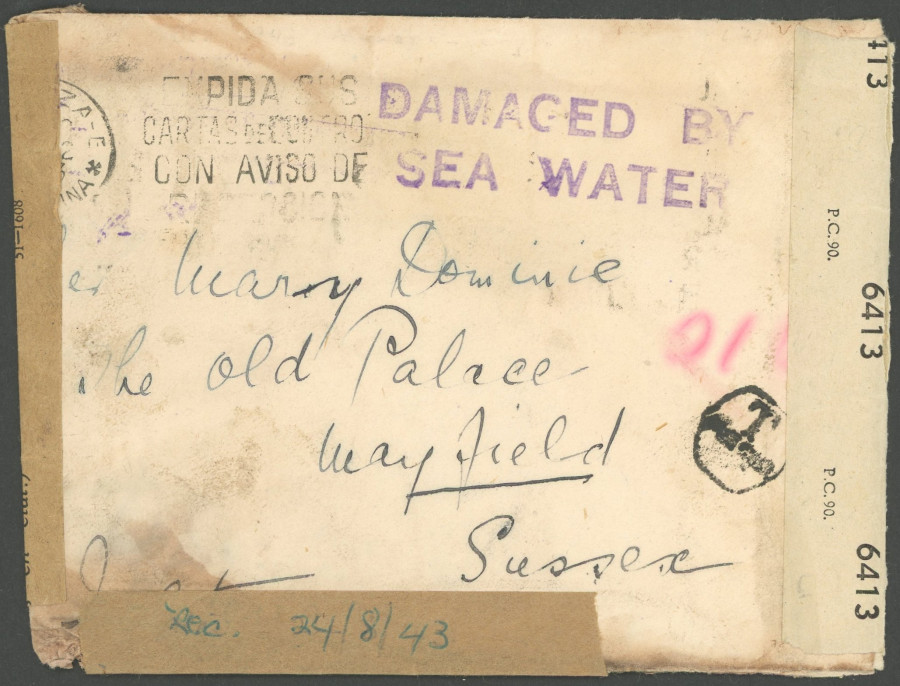 EXPIDA SUS
CARTAS DE DINERO
CON AVISO DE
RECEPCION
DAMAGED BY
SEA WATER
Mary Dominic
The Old Palace
Mayfield
Sussex
21
T
Rec. 24/8/43
51—1608
413
P.C. 90.
6413
P.C. 90.
6413